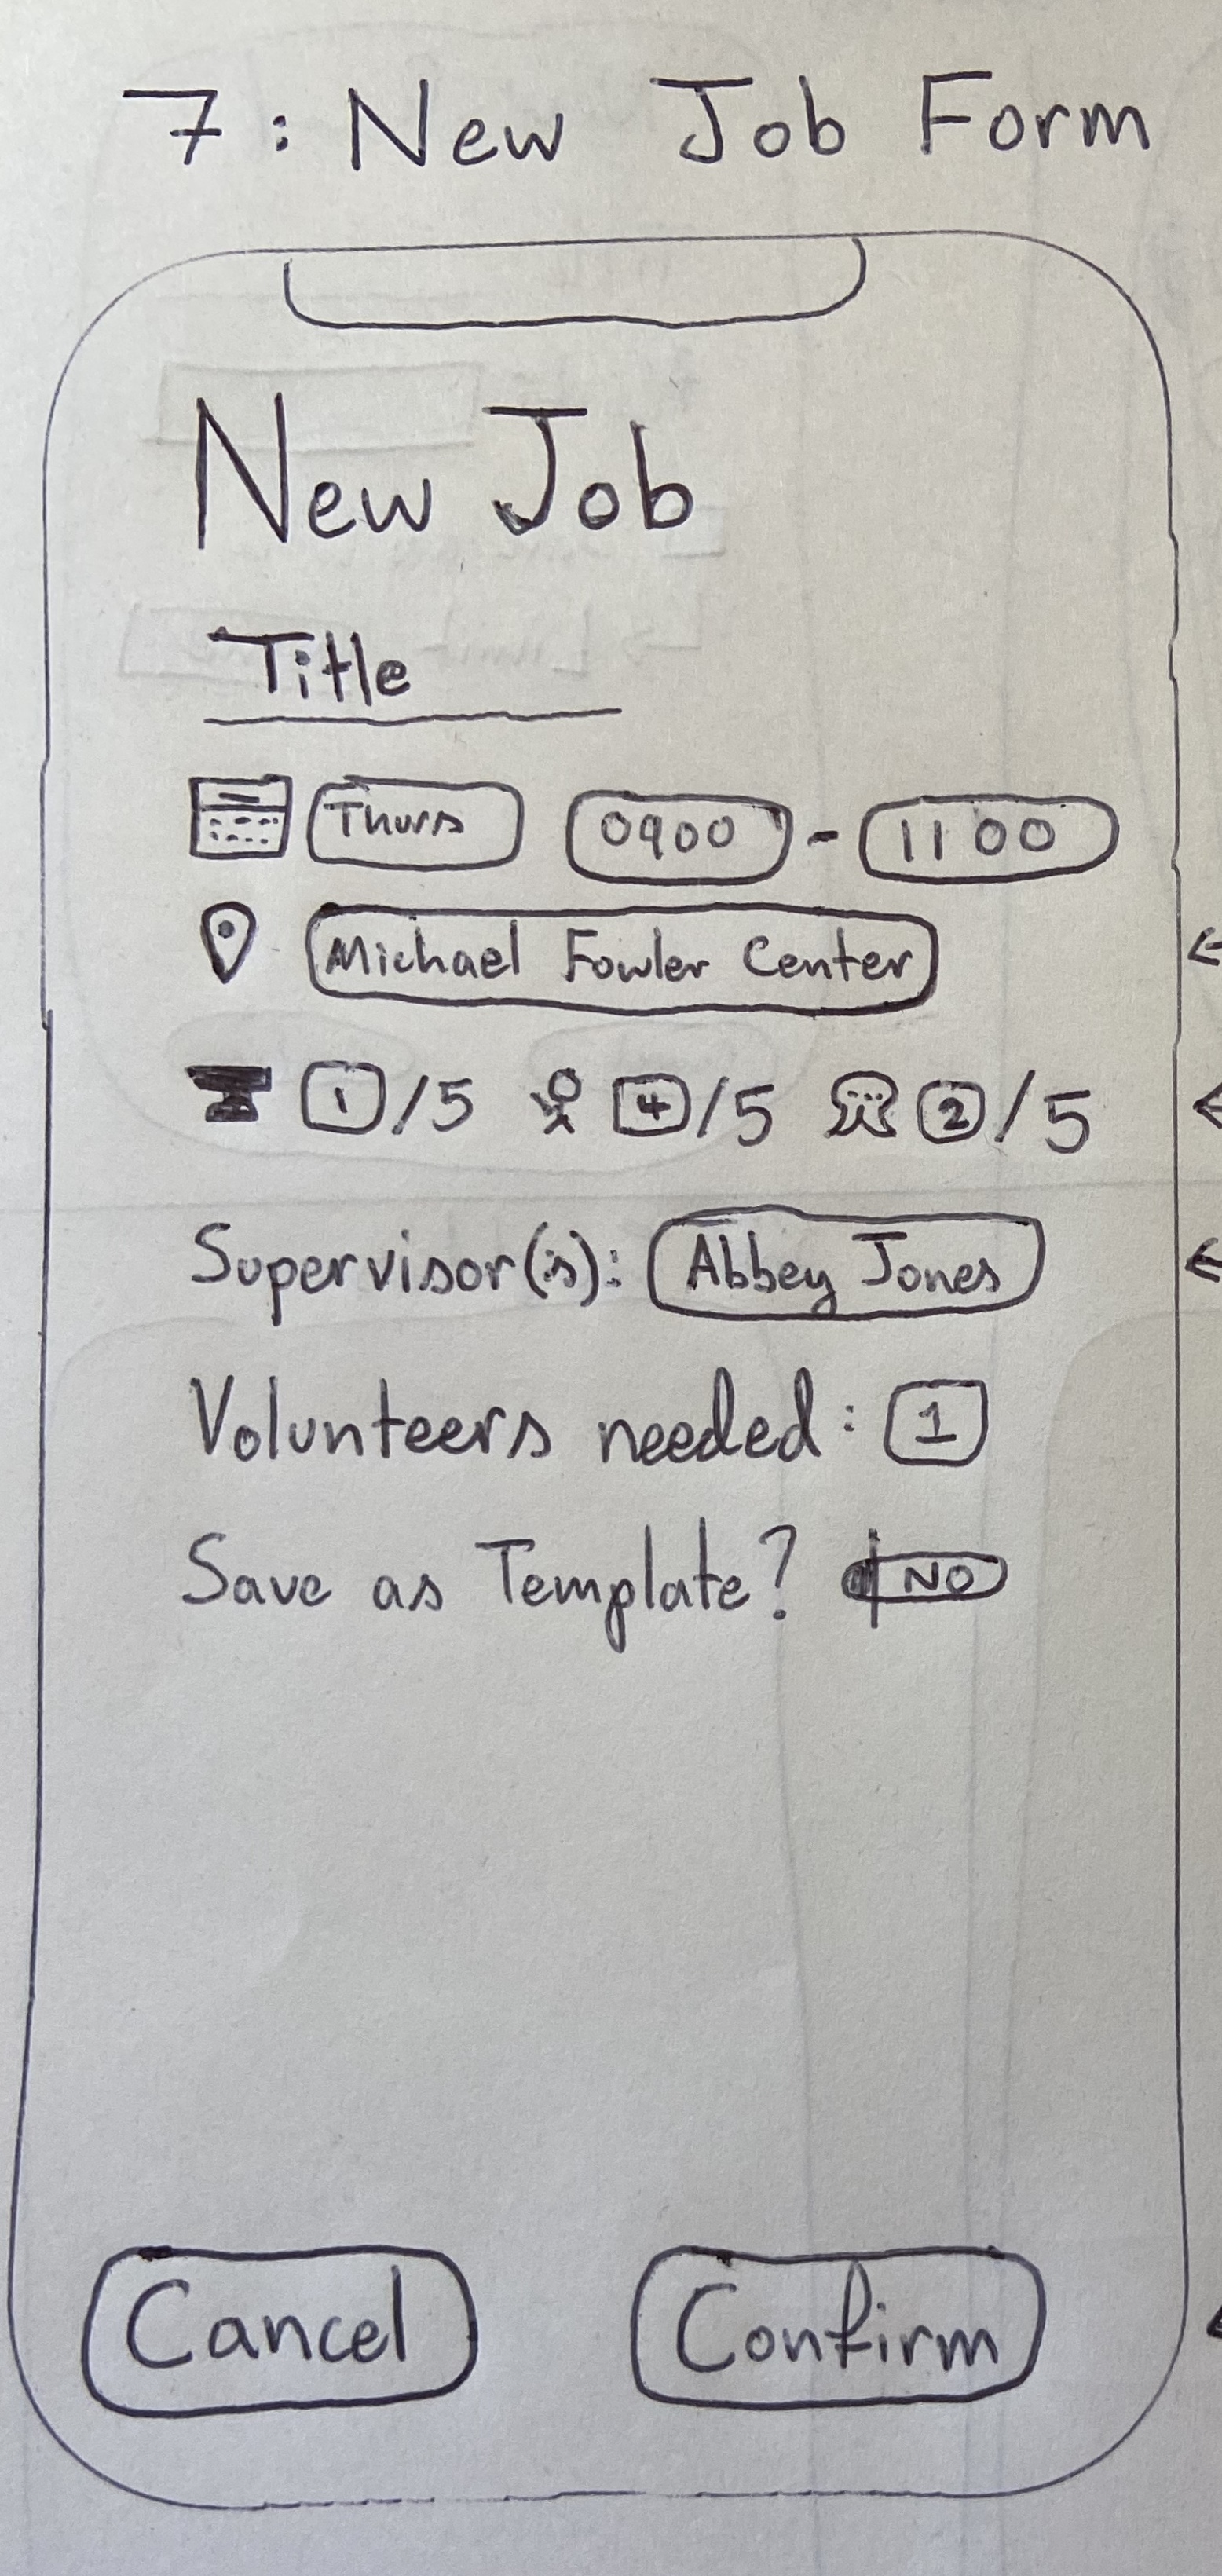 7: New Job Form
New Job
Title
Thurs 0900 - 1100
Michael Fowler Center
1/5 4/5 2/5
Supervisor(s): Abbey Jones
Volunteers needed: 1
Save as Template? NO
Cancel Confirm